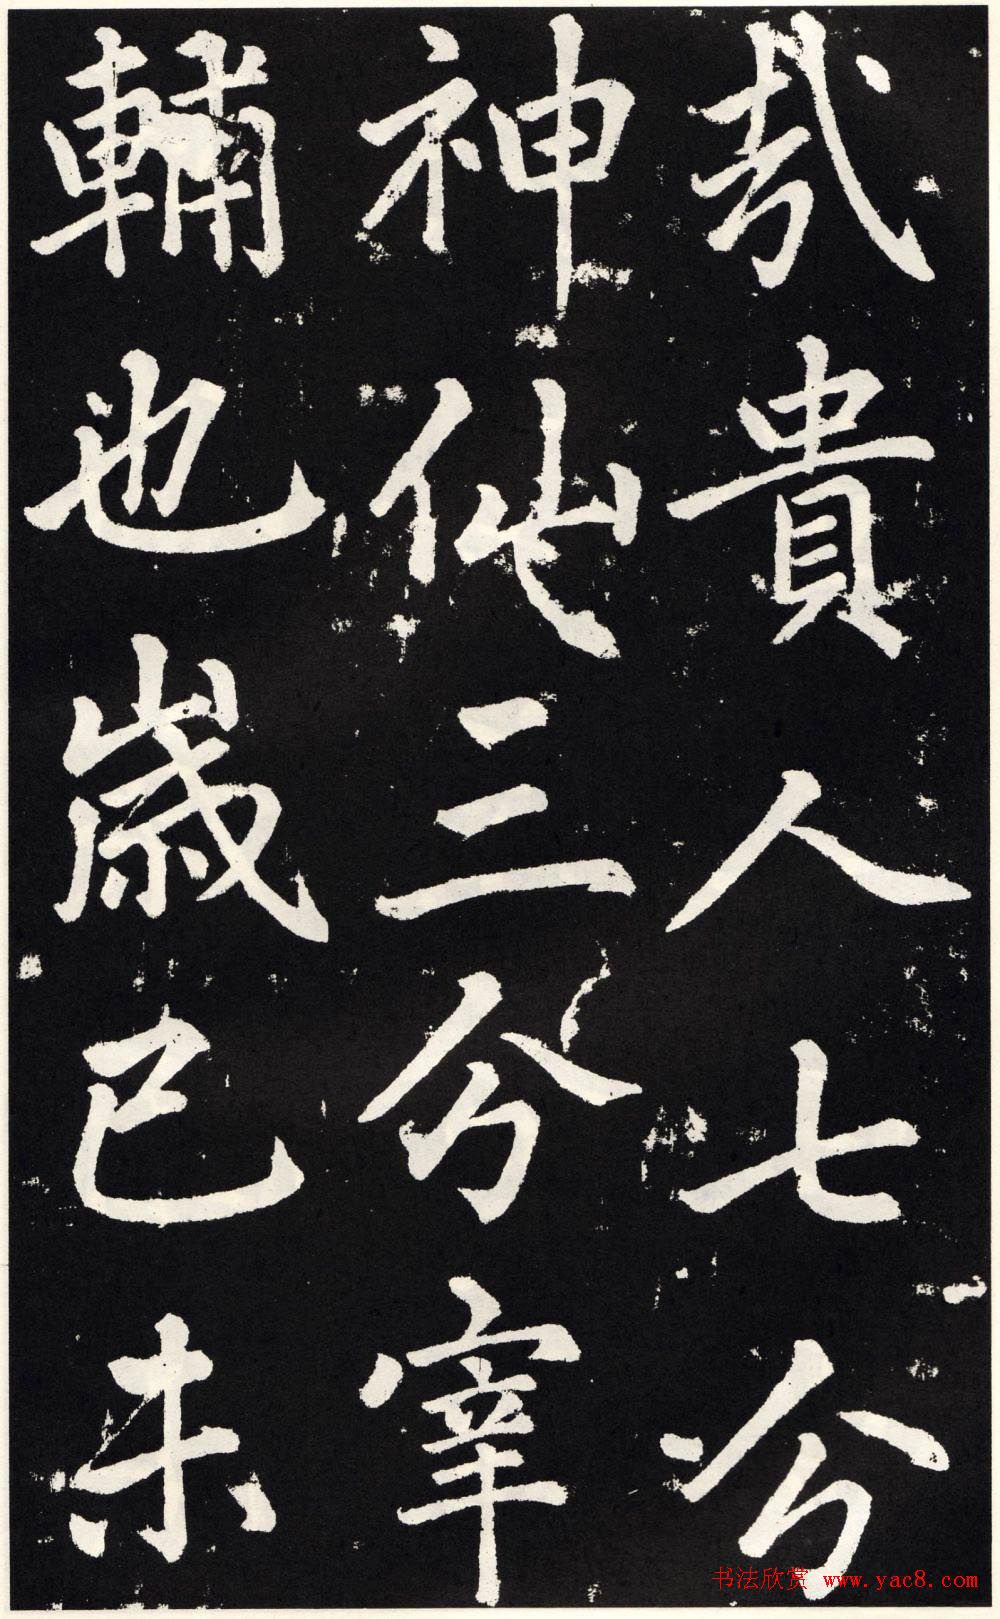 貴人七分
神仙三分宰
輔也歲己未
书法欣赏 www.yac8.com